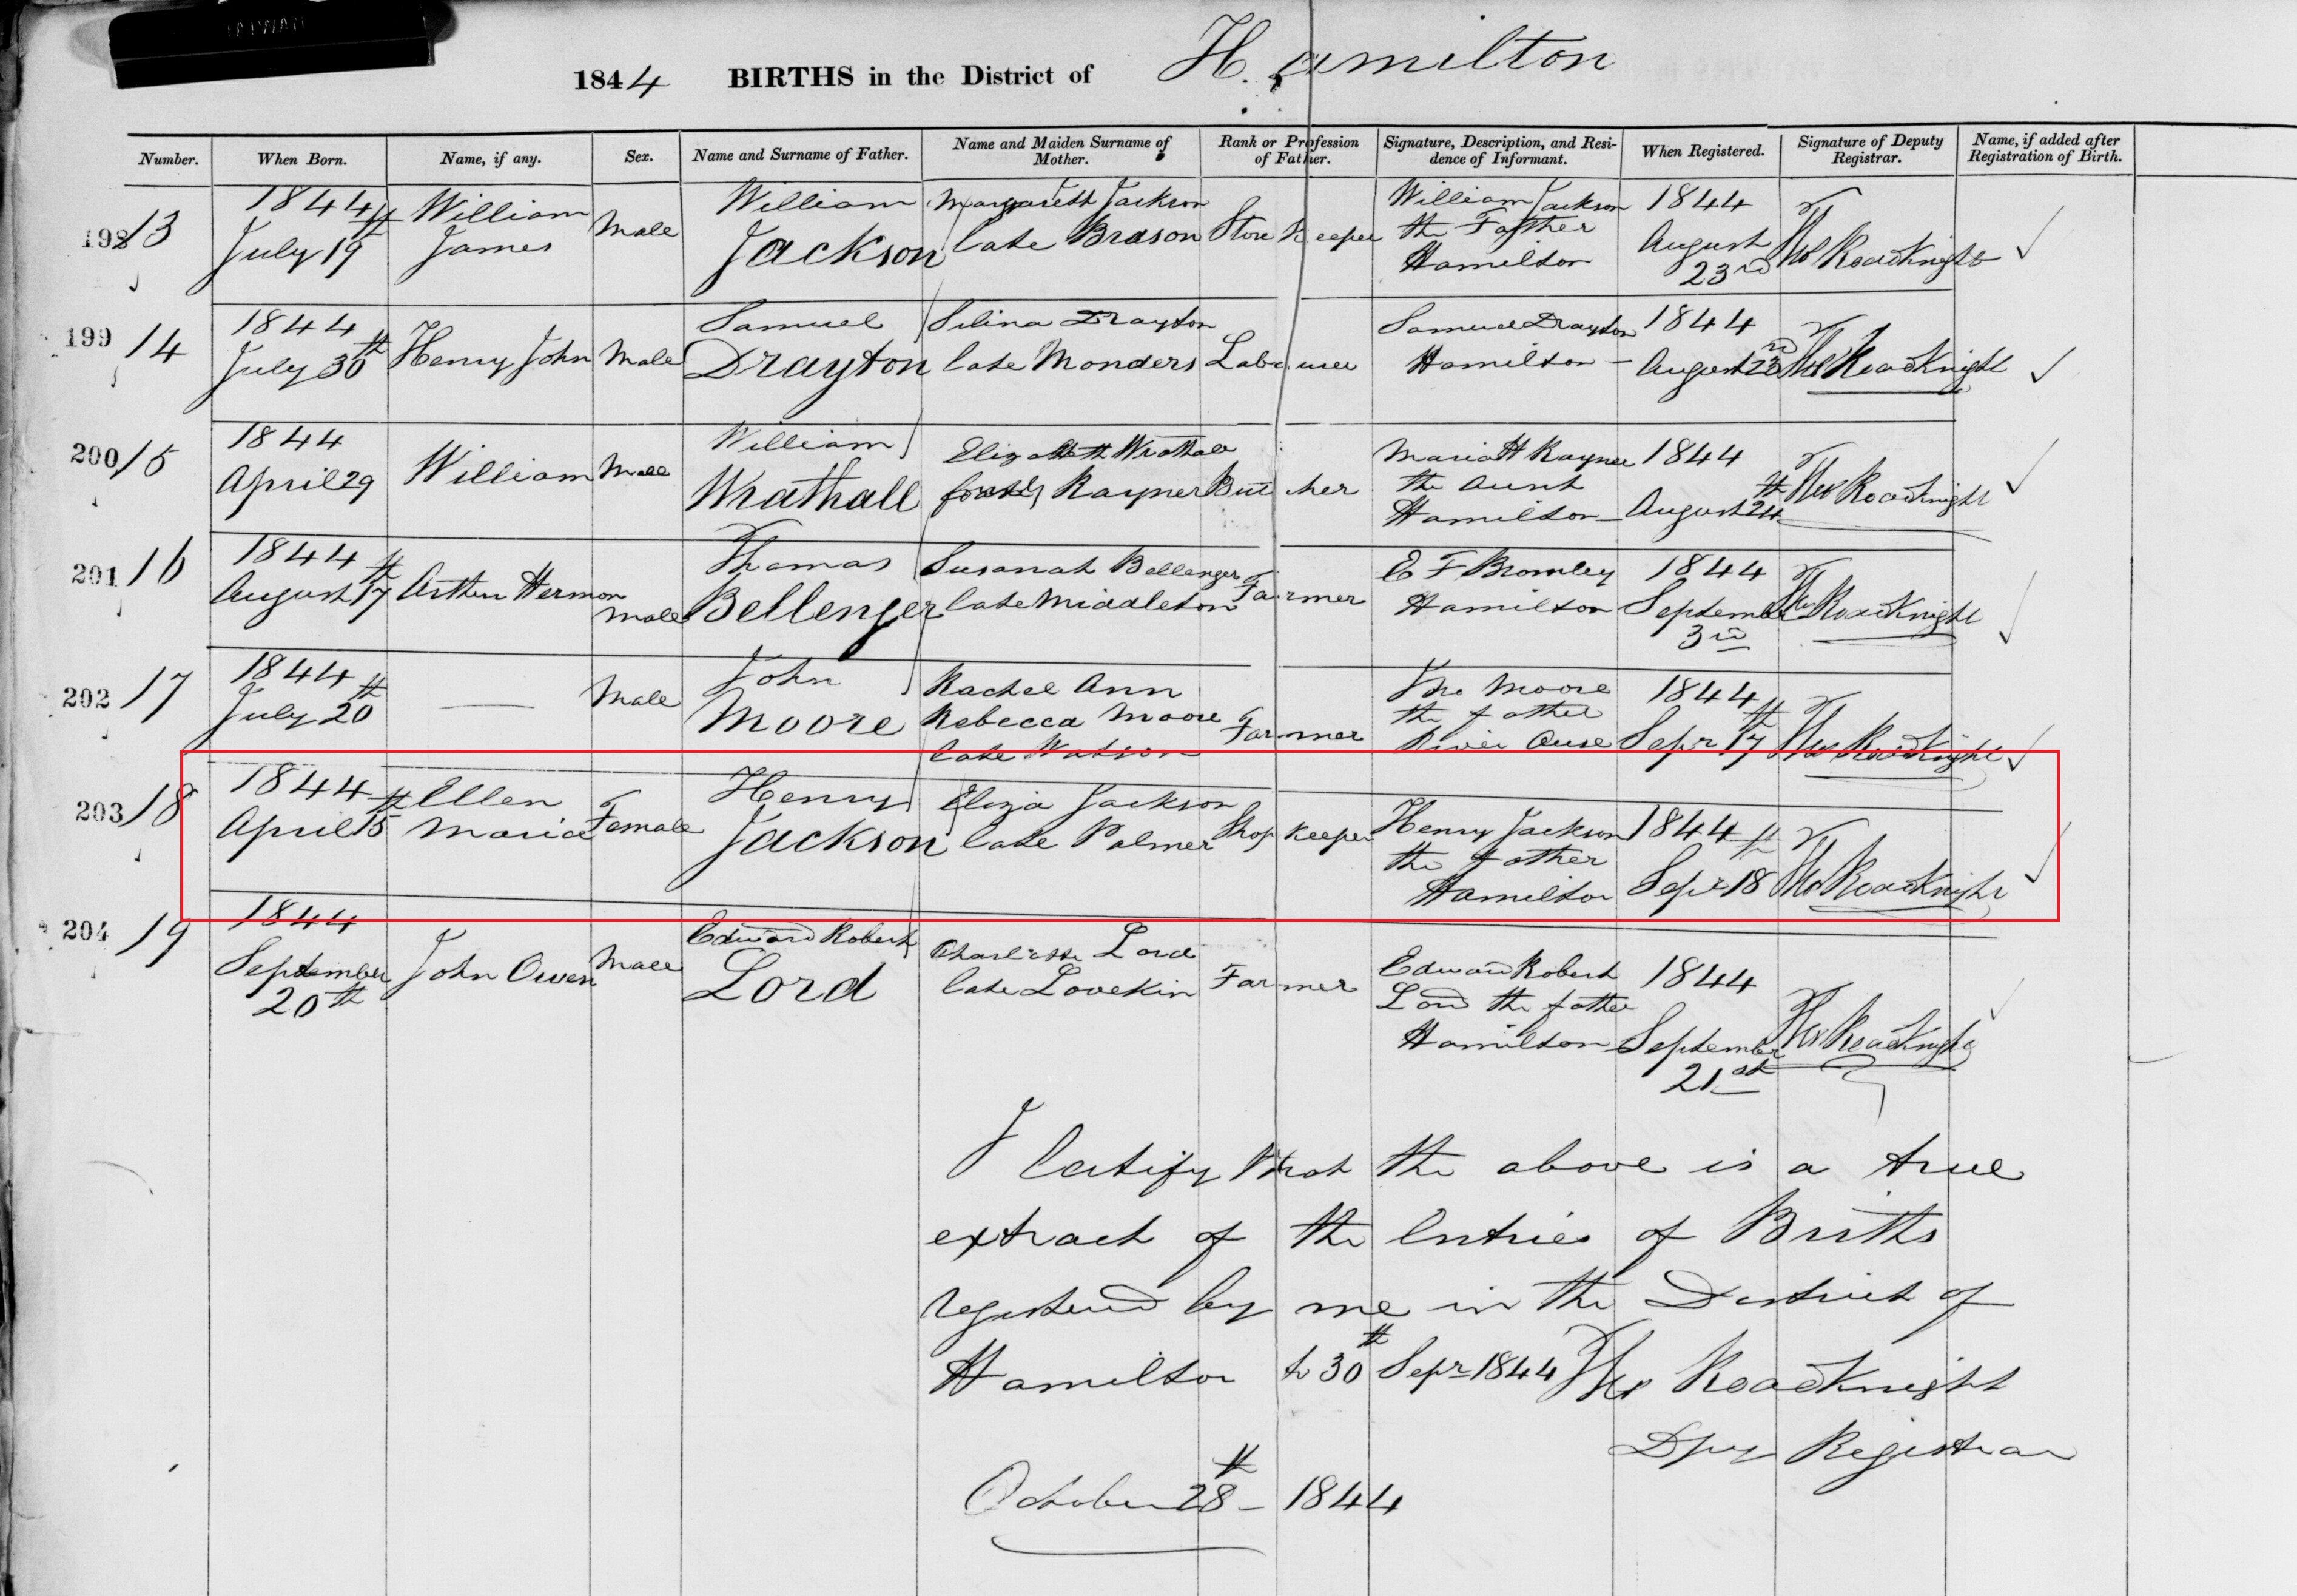 TAIWAN
1844 BIRTHS in the District of Hamilton
Number. When Born. Name, if any. Sex. Name and Surname of Father. Name and Maiden Surname of Mother. Rank or Profession of Father. Signature, Description, and Residence of Informant. When Registered. Signature of Deputy Registrar. Name, if added after Registration of Birth.
198 13 1844 July 19th William James Male William Jackson Margarett Jackson late Brason Store Keeper William Jackson the Father Hamilton 1844 August 23rd Thos RoadKnight
199 14 1844 July 30th Henry John Male Samuel Drayton Silina Drayton late Monders Labourer Samuel Drayton Hamilton 1844 August 23rd Thos RoadKnight
200 15 1844 April 29 William Male William Wrathall Elizabeth Wrathall formerly Rayner Butcher Maria H Rayner the Aunt Hamilton 1844 August 24th Thos RoadKnight
201 16 1844 August 17th Arthur Hermon Male Thomas Bellenger Susanah Bellenger late Middleton Farmer E F Bromley Hamilton 1844 September 3rd Thos RoadKnight
202 17 1844 July 20th — Male John Moore Rachel Ann Rebecca Moore late Watson Farmer Jno Moore the father River Ouse 1844 Sepr 17th Thos RoadKnight
203 18 1844 April 15th Ellen Maria Female Henry Jackson Eliza Jackson late Palmer Shop Keeper Henry Jackson the father Hamilton 1844 Sepr 18th Thos RoadKnight
204 19 1844 September 20th John Owen Male Edward Robert Lord Charlotte Lord late Lovekin Farmer Edward Robert Lord the father Hamilton 1844 September 21st Thos RoadKnight
I Certify that the above is a true
extract of the Entries of Births
registered by me in the District of
Hamilton to 30th Sepr 1844 Thos RoadKnight
Dpy Registrar
October 28th – 1844